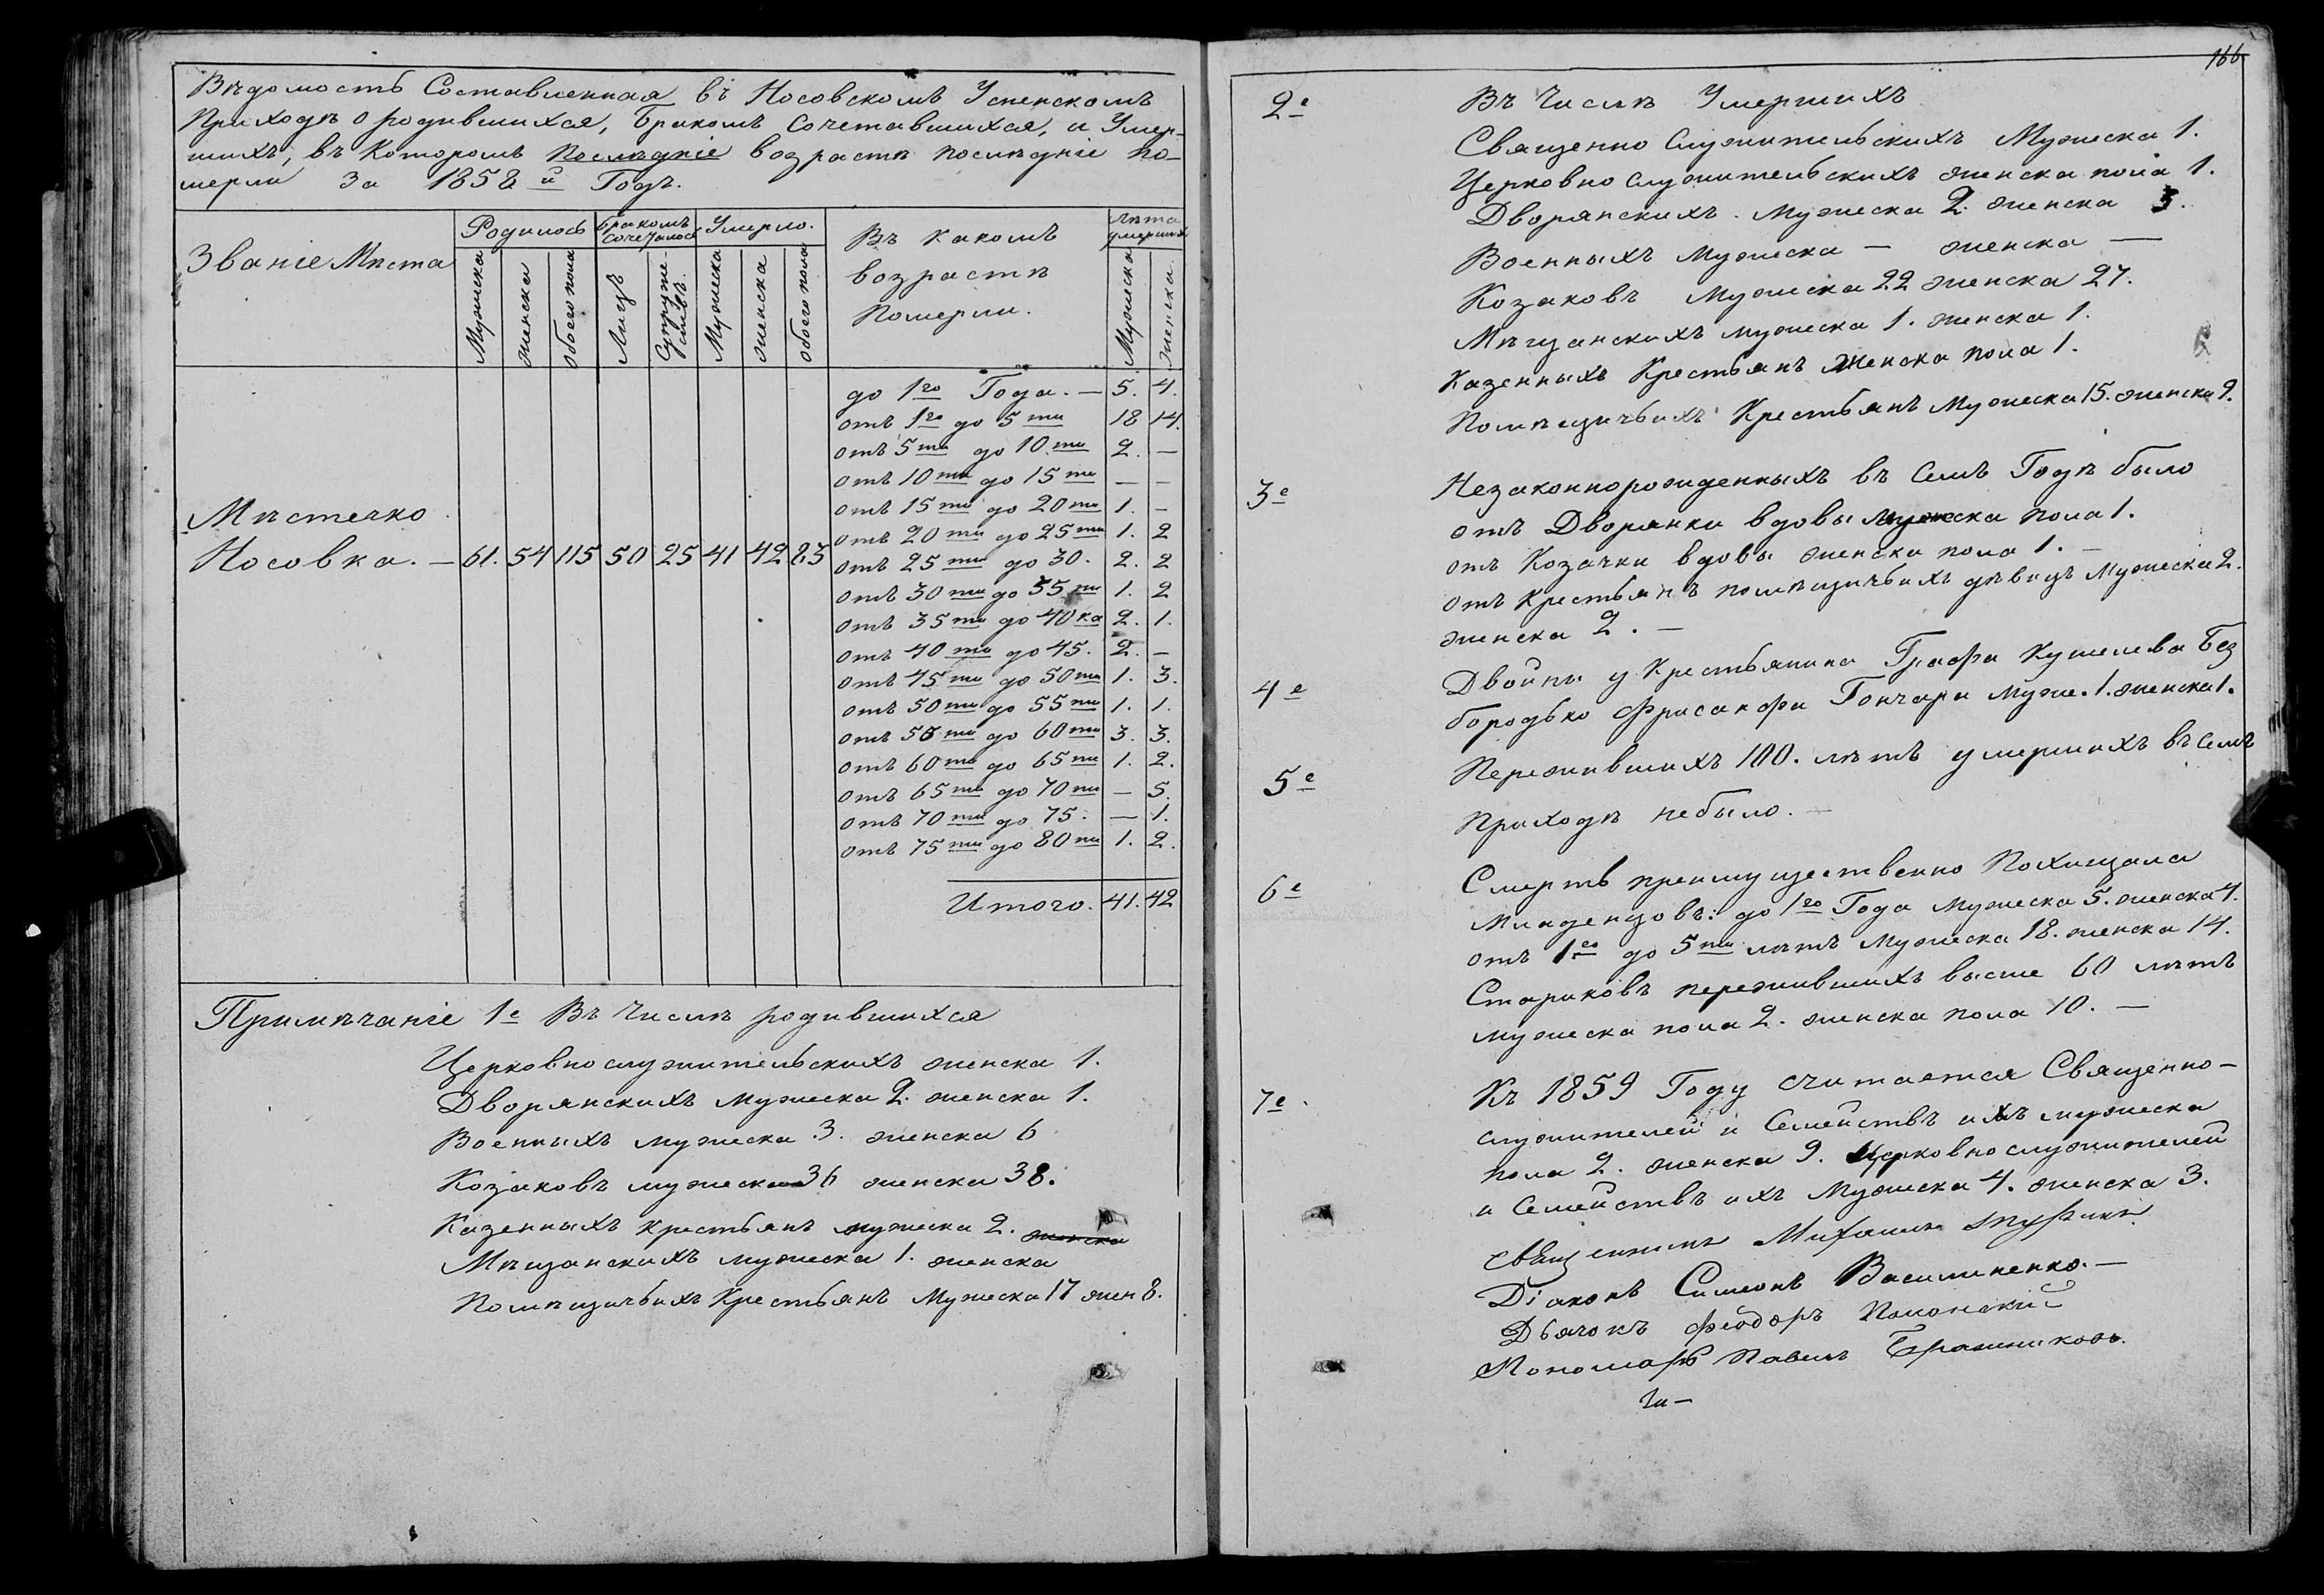 Вѣдомость Составленная въ Носовскомъ Успенскомъ
Приходѣ о родившихся, бракомъ Сочетавшихся, и Умер-
шихъ, въ Которомъ Последніе возрастѣ послѣдніе по-
мерли За 1858 й Годъ.
Званіе Мѣста
Родилось
Мужеска
женска
обоего пола
бракомъ сочеталось
Лицъ
Супружествъ.
Умерло.
Мужеска
женска
обоего пола
Въ Какомъ
возрастѣ
Померли.
Лѣта умершихъ
Мужеска
женска.
до 1го Года. — 5. 4.
отъ 1го до 5ти 18 14.
отъ 5ти до 10.ти 2. —
отъ 10ти до 15ти — —
отъ 15ти до 20ти 1. —
отъ 20ти до 25ти 1. 2
Мѣстечко
Носовка. — 61. 54 115 50 25 41 42 83
отъ 25ти до 30. 2. 2
отъ 30ти до 35ти 1. 2
отъ 35ти до 40ка 2. 1.
отъ 40ти до 45. 2. —
отъ 45ти до 50ти 1. 3.
отъ 50ти до 55ти 1. 1.
отъ 55ти до 60ти 3. 3.
отъ 60ти до 65ти 1. 2.
отъ 65ти до 70ти — 5.
отъ 70ти до 75. — 1.
отъ 75ти до 80ти 1. 2.
Итого. 41. 42
Примѣчаніе 1е Въ Числѣ родившихся
Церковнослужительскихъ женска 1.
Дворянскихъ мужеска 2. женска 1.
Военныхъ мужеска 3. женска 6
Козаковъ мужеска 36 женска 38.
Казенныхъ крестьянъ мужеска 2. женска
Мѣщанскихъ мужеска 1. женска
Помѣщичьихъ Крестьянъ Мужеска 17 жен 8.
166
2е Въ Числѣ Умершихъ
Священно Служительскихъ Мужеска 1.
Церковно служительскихъ женска пола 1.
Дворянскихъ. Мужеска 2. женска 3.
Военныхъ Мужеска — женска —
Козаковъ Мужеска 22 женска 27.
Мѣщанскихъ мужеска 1. женска 1.
Казенныхъ Крестьянъ Женска пола 1.
Помѣщичьихъ Крестьянъ Мужеска 15. женска 9.
3е Незаконнорожденныхъ въ Семъ Годѣ было
отъ Дворянки вдовы Мужеска пола 1.
отъ Козачки вдовы женска пола 1. —
отъ Крестьянъ помѣщичьихъ дѣвицъ Мужеска 2.
женска 2. —
4е Двойни у Крестьянина Графа Кушелева Без
бородько Фрисанфа Гончара Муже. 1. женска 1.
5е Пережившихъ 100. лѣтъ умершихъ въ семъ
Приходѣ небыло. —
6е Смерть преимущественно Похищала
младенцовъ: до 1го Года Мужеска 5. женска 4.
отъ 1го до 5ти лѣтъ Мужеска 18. женска 14.
Стариковъ пережившихъ высше 60 лѣтъ
мужеска пола 2. женска пола 10. —
7е Къ 1859 Году считается Священно-
служителей и Семействъ ихъ мужеска
пола 2. женска 9. Церковнослужителей
и Семействъ ихъ Мужеска 4. женска 3.
Священникъ Михаилъ
Діаконъ Симеонъ Василиненко. —
Дьячокъ Феодоръ Полонскій
Пономарь Павелъ Бражниковъ.